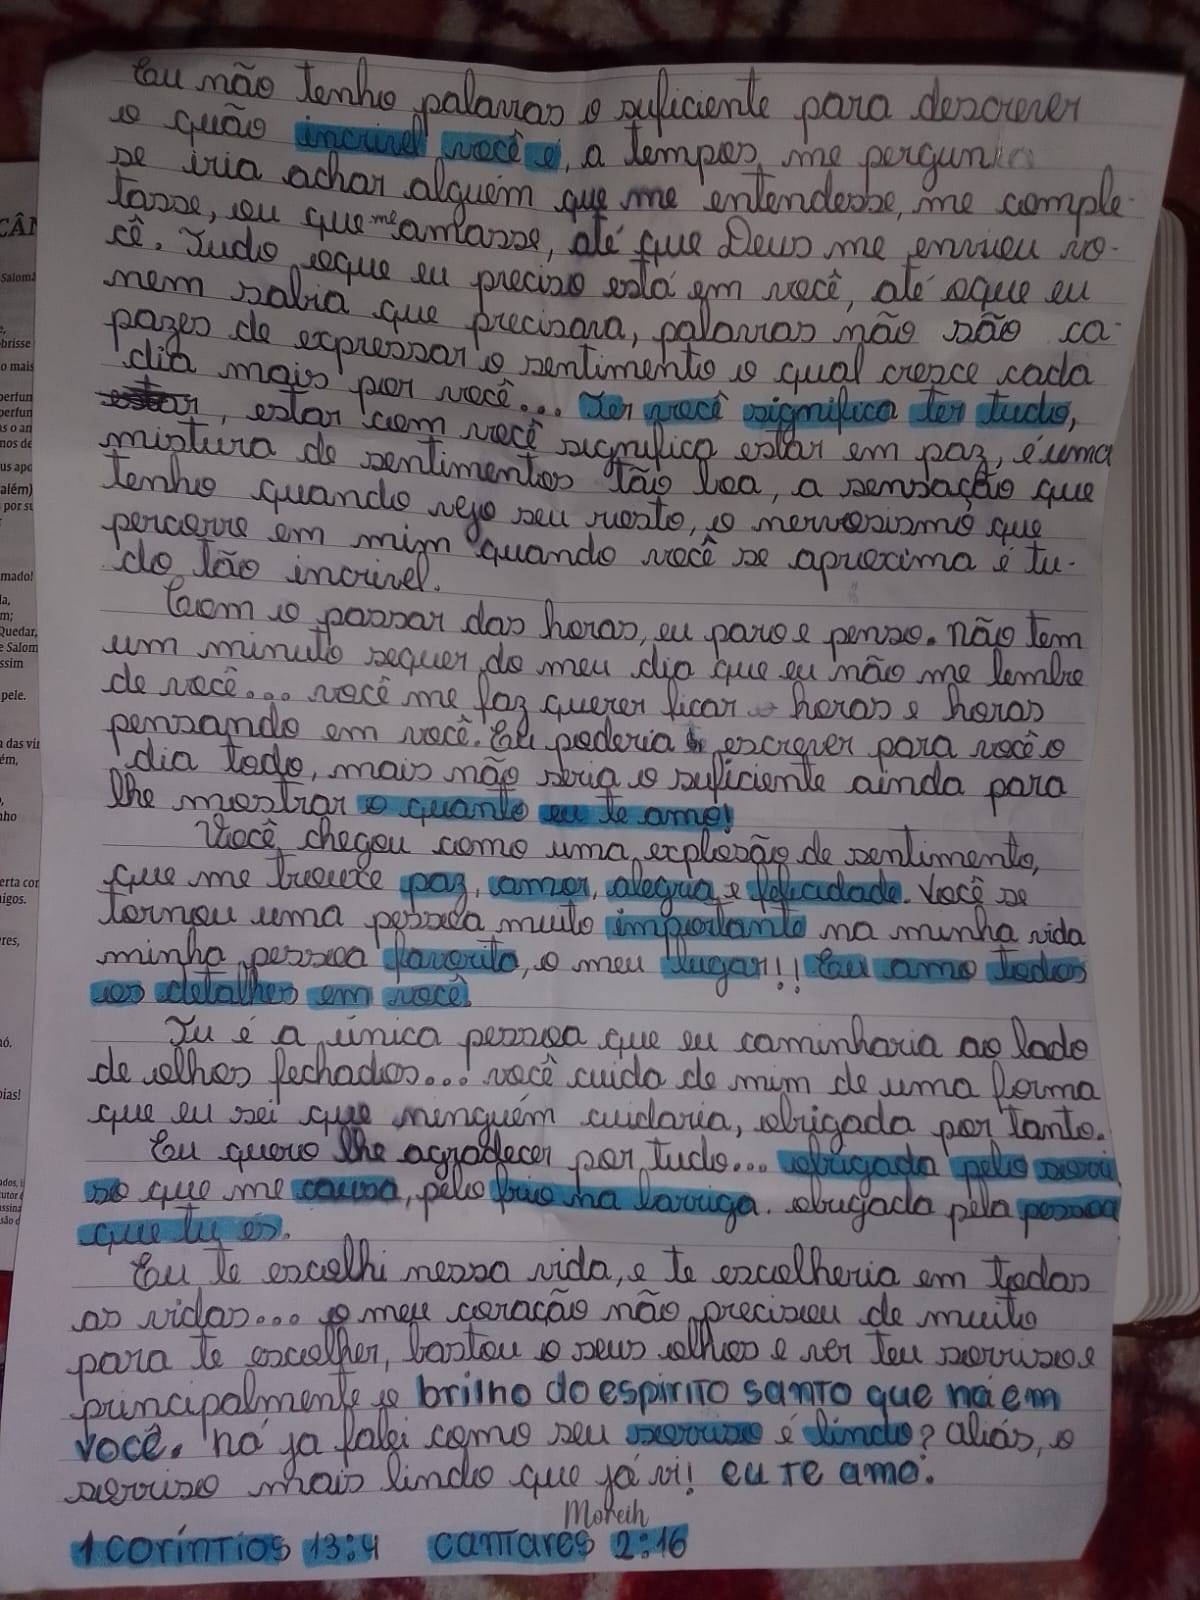 Eu não tenho palavras o suficiente para descrever
o quão incrivel você é, a tempos me pergunta
se iria achar alguém que me entendesse, me comple-
tasse, ou que me amasse, até que Deus me enviou vo-
cê. Tudo oque eu preciso está em você, até oque eu
nem sabia que precisara, palavras não são ca-
pazes de expressar o sentimento o qual cresce cada
dia mais por você... Ter você significa ter tudo,
estar, estar com você significa estar em paz, é uma
mistura de sentimentos tão boa, a sensação que
tenho quando vejo seu rosto, o nervosismo que
percorre em mim quando você se aproxima é tu-
do tão incrivel.
Com o passar das horas, eu paro e penso. não tem
um minuto sequer do meu dia que eu não me lembre
de você... você me faz querer ficar horas e horas
pensando em você. Eu poderia escrever para você o
dia todo, mais não seria o suficiente ainda para
lhe mostrar o quanto eu te amo!
Você chegou como uma explosão de sentimento,
que me trouxe paz, amor, alegria e felicidade. Você se
tornou uma pessoa muito importante na minha vida
minha pessoa favorita, o meu lugar!! Eu amo todos
os detalhes em você.
Tu é a única pessoa que eu caminharia ao lado
de olhos fechados... você cuida de mim de uma forma
que eu sei que ninguém cuidaria, obrigada por tanto.
Eu quero lhe agradecer por tudo... obrigada pelo sorri
so que me causa, pelo frio na barriga. obrigada pela pessoa
que tu és.
Eu te escolhi nessa vida, e te escolheria em todas
as vidas... o meu coração não precisou de muito
para te escolher, bastou o seus olhos e ver teu sorriso e
principalmente o brilho do espirito santo que há em
você. há ja falei como seu sorriso é lindo? aliás, o
sorriso mais lindo que já vi! eu te amo.
1 coríntios 13:4 cantares 2:16
CÂN
Salom
brisse
o mais
perfun
perfun
mado!
Quedar,
e Salom
ssim
pele.
a das vir
erta cor
igos.